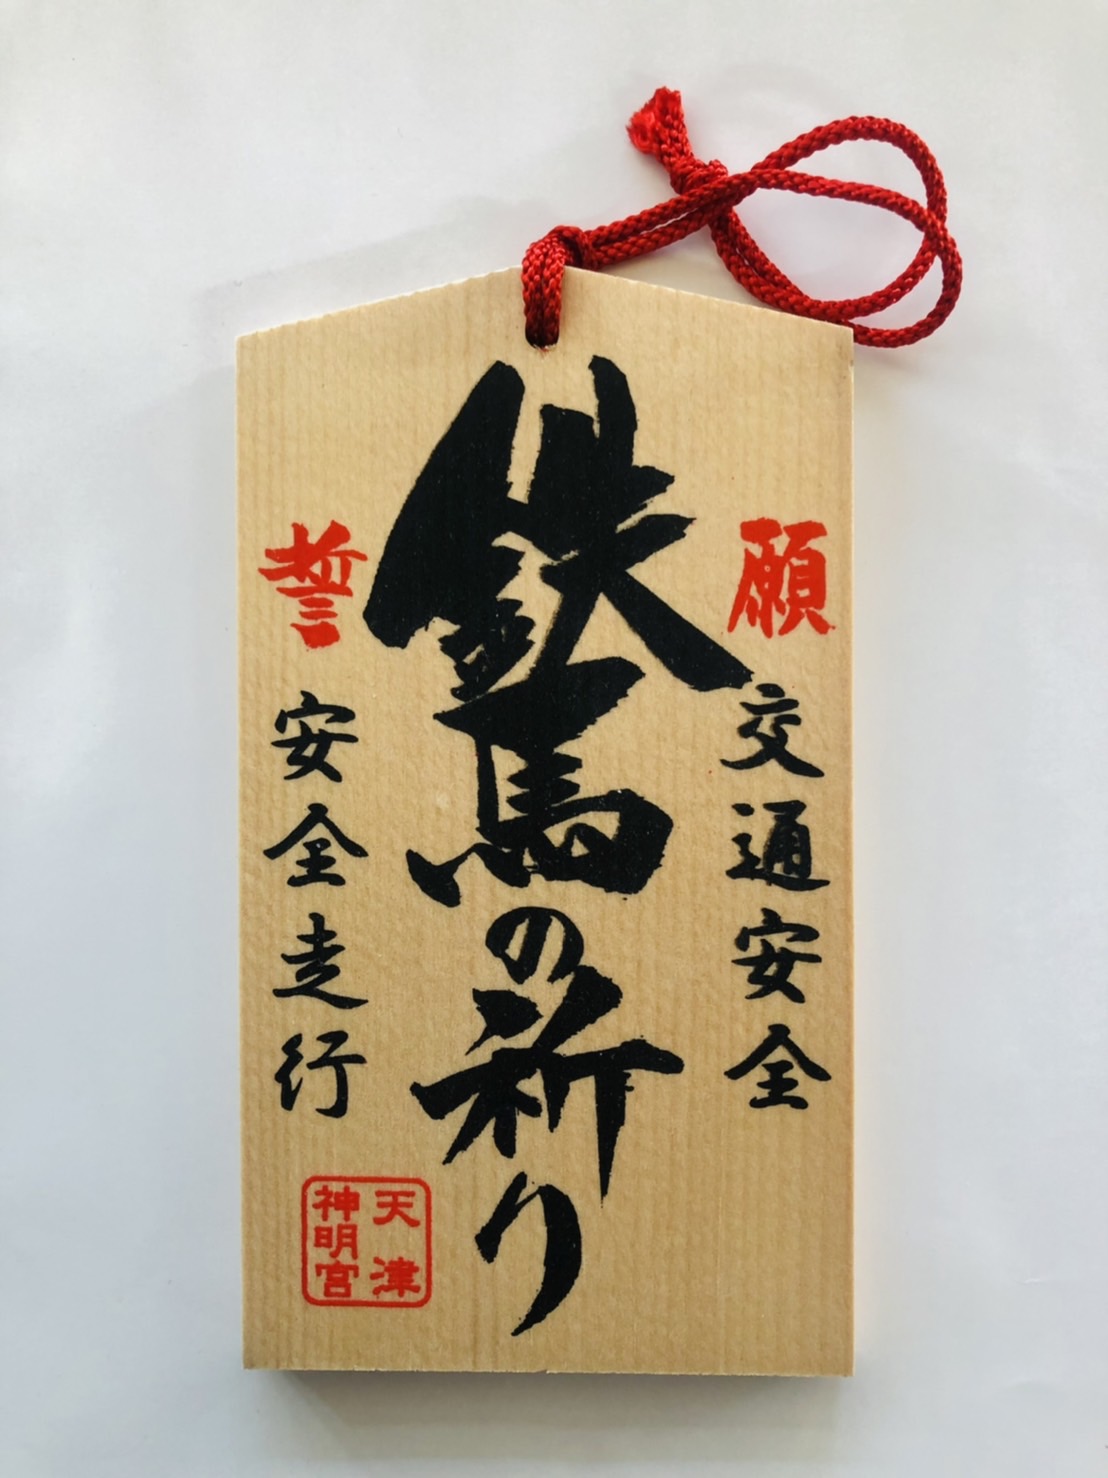 願
交通安全
鉄馬の祈り
誓
安全走行
天津
神明宮